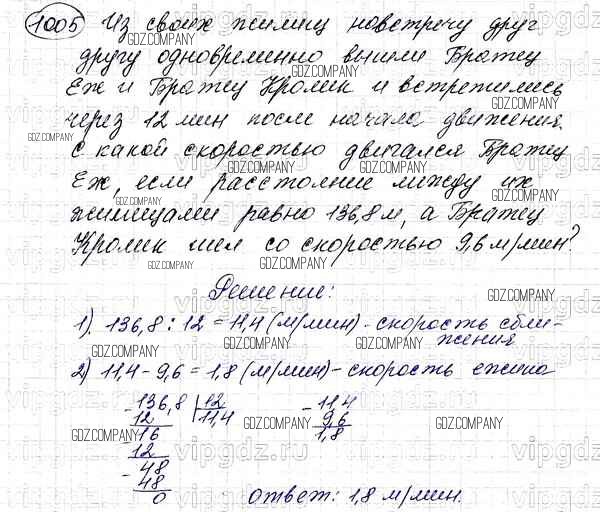 1005 Из своих жилищ навстречу друг
другу одновременно вышли Братец
Еж и Братец Кролик и встретились
через 12 мин после начала движения.
С какой скоростью двигался Братец
Еж, если расстояние между их
жилищами равно 136,8 м, а Братец
Кролик шел со скоростью 9,6 м/мин?
Решение:
1) 136,8 : 12 = 11,4 (м/мин) - скорость сбли-
жения
2) 11,4 - 9,6 = 1,8 (м/мин) - скорость ежика
- 136,8 | 12 - 11,4
12 11,4 9,6
- 16 1,8
12
- 48
48
0 ответ: 1,8 м/мин.
GDZ.COMPANY
vipgdz.ru